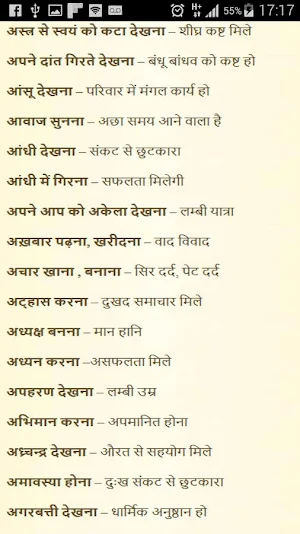 55% 17:17
अस्त्र से स्वयं को कटा देखना – शीघ्र कष्ट मिले
अपने दांत गिरते देखना – बंधू बांधव को कष्ट हो
आंसू देखना – परिवार में मंगल कार्य हो
आवाज सुनना – अछा समय आने वाला है
आंधी देखना – संकट से छुटकारा
आंधी में गिरना – सफलता मिलेगी
अपने आप को अकेला देखना – लम्बी यात्रा
अख़बार पढ़ना, खरीदना – वाद विवाद
अचार खाना , बनाना – सिर दर्द, पेट दर्द
अट्हास करना – दुखद समाचार मिले
अध्यक्ष बनना – मान हानि
अध्यन करना –असफलता मिले
अपहरण देखना – लम्बी उम्र
अभिमान करना – अपमानित होना
अध्र्चन्द्र देखना – औरत से सहयोग मिले
अमावस्या होना – दुःख संकट से छुटकारा
अगरबत्ती देखना – धार्मिक अनुष्ठान हो